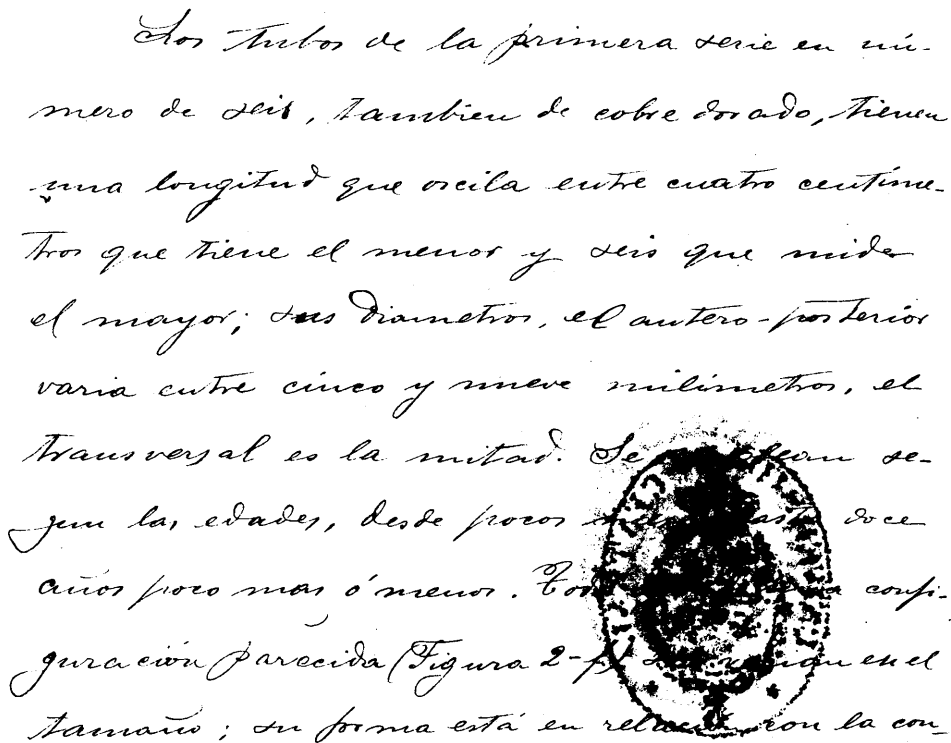 Los tubos de la primera serie en nú-
mero de seis, tambien de cobre dorado, tienen
una longitud que oscila entre cuatro centíme-
tros que tiene el menor y seis que mide
el mayor; sus diametros, el antero-posterior
varia entre cinco y nueve milimetros, el
transversal es la mitad. Se emplean se-
gun las edades, desde pocos meses hasta doce
años poco mas ó menos. confi-
guración parecida (Figura 2-f) varian en el
tamaño; su forma está en relación con la con-